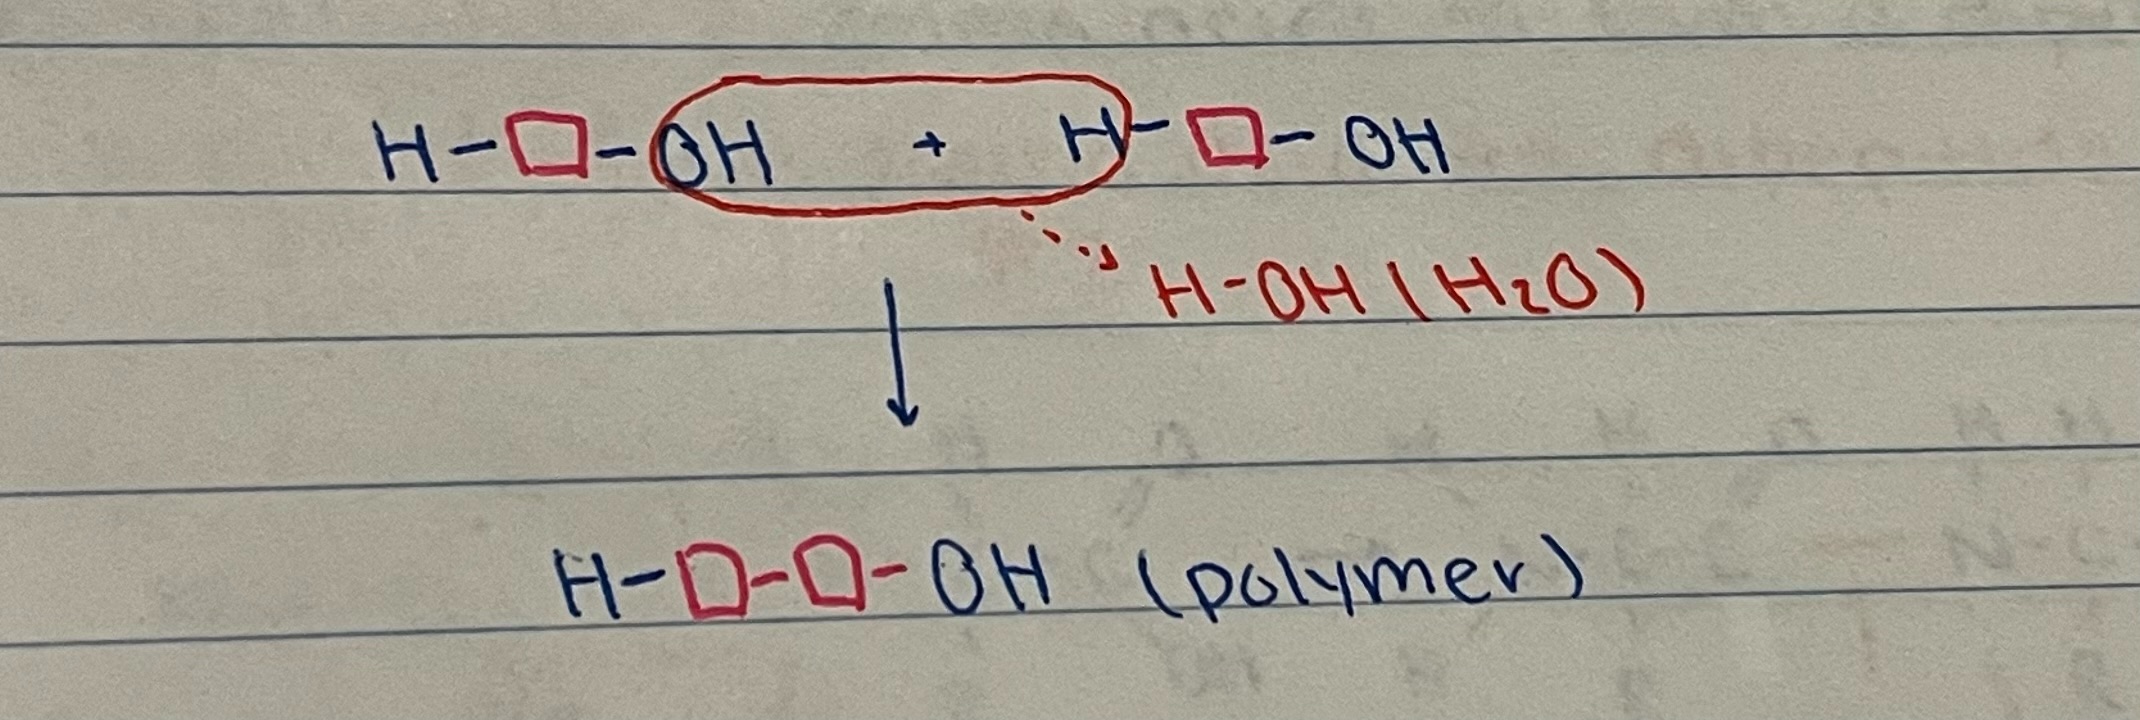 H-□-OH + H-□-OH
H-OH (H₂O)
H-□-□-OH (polymer)